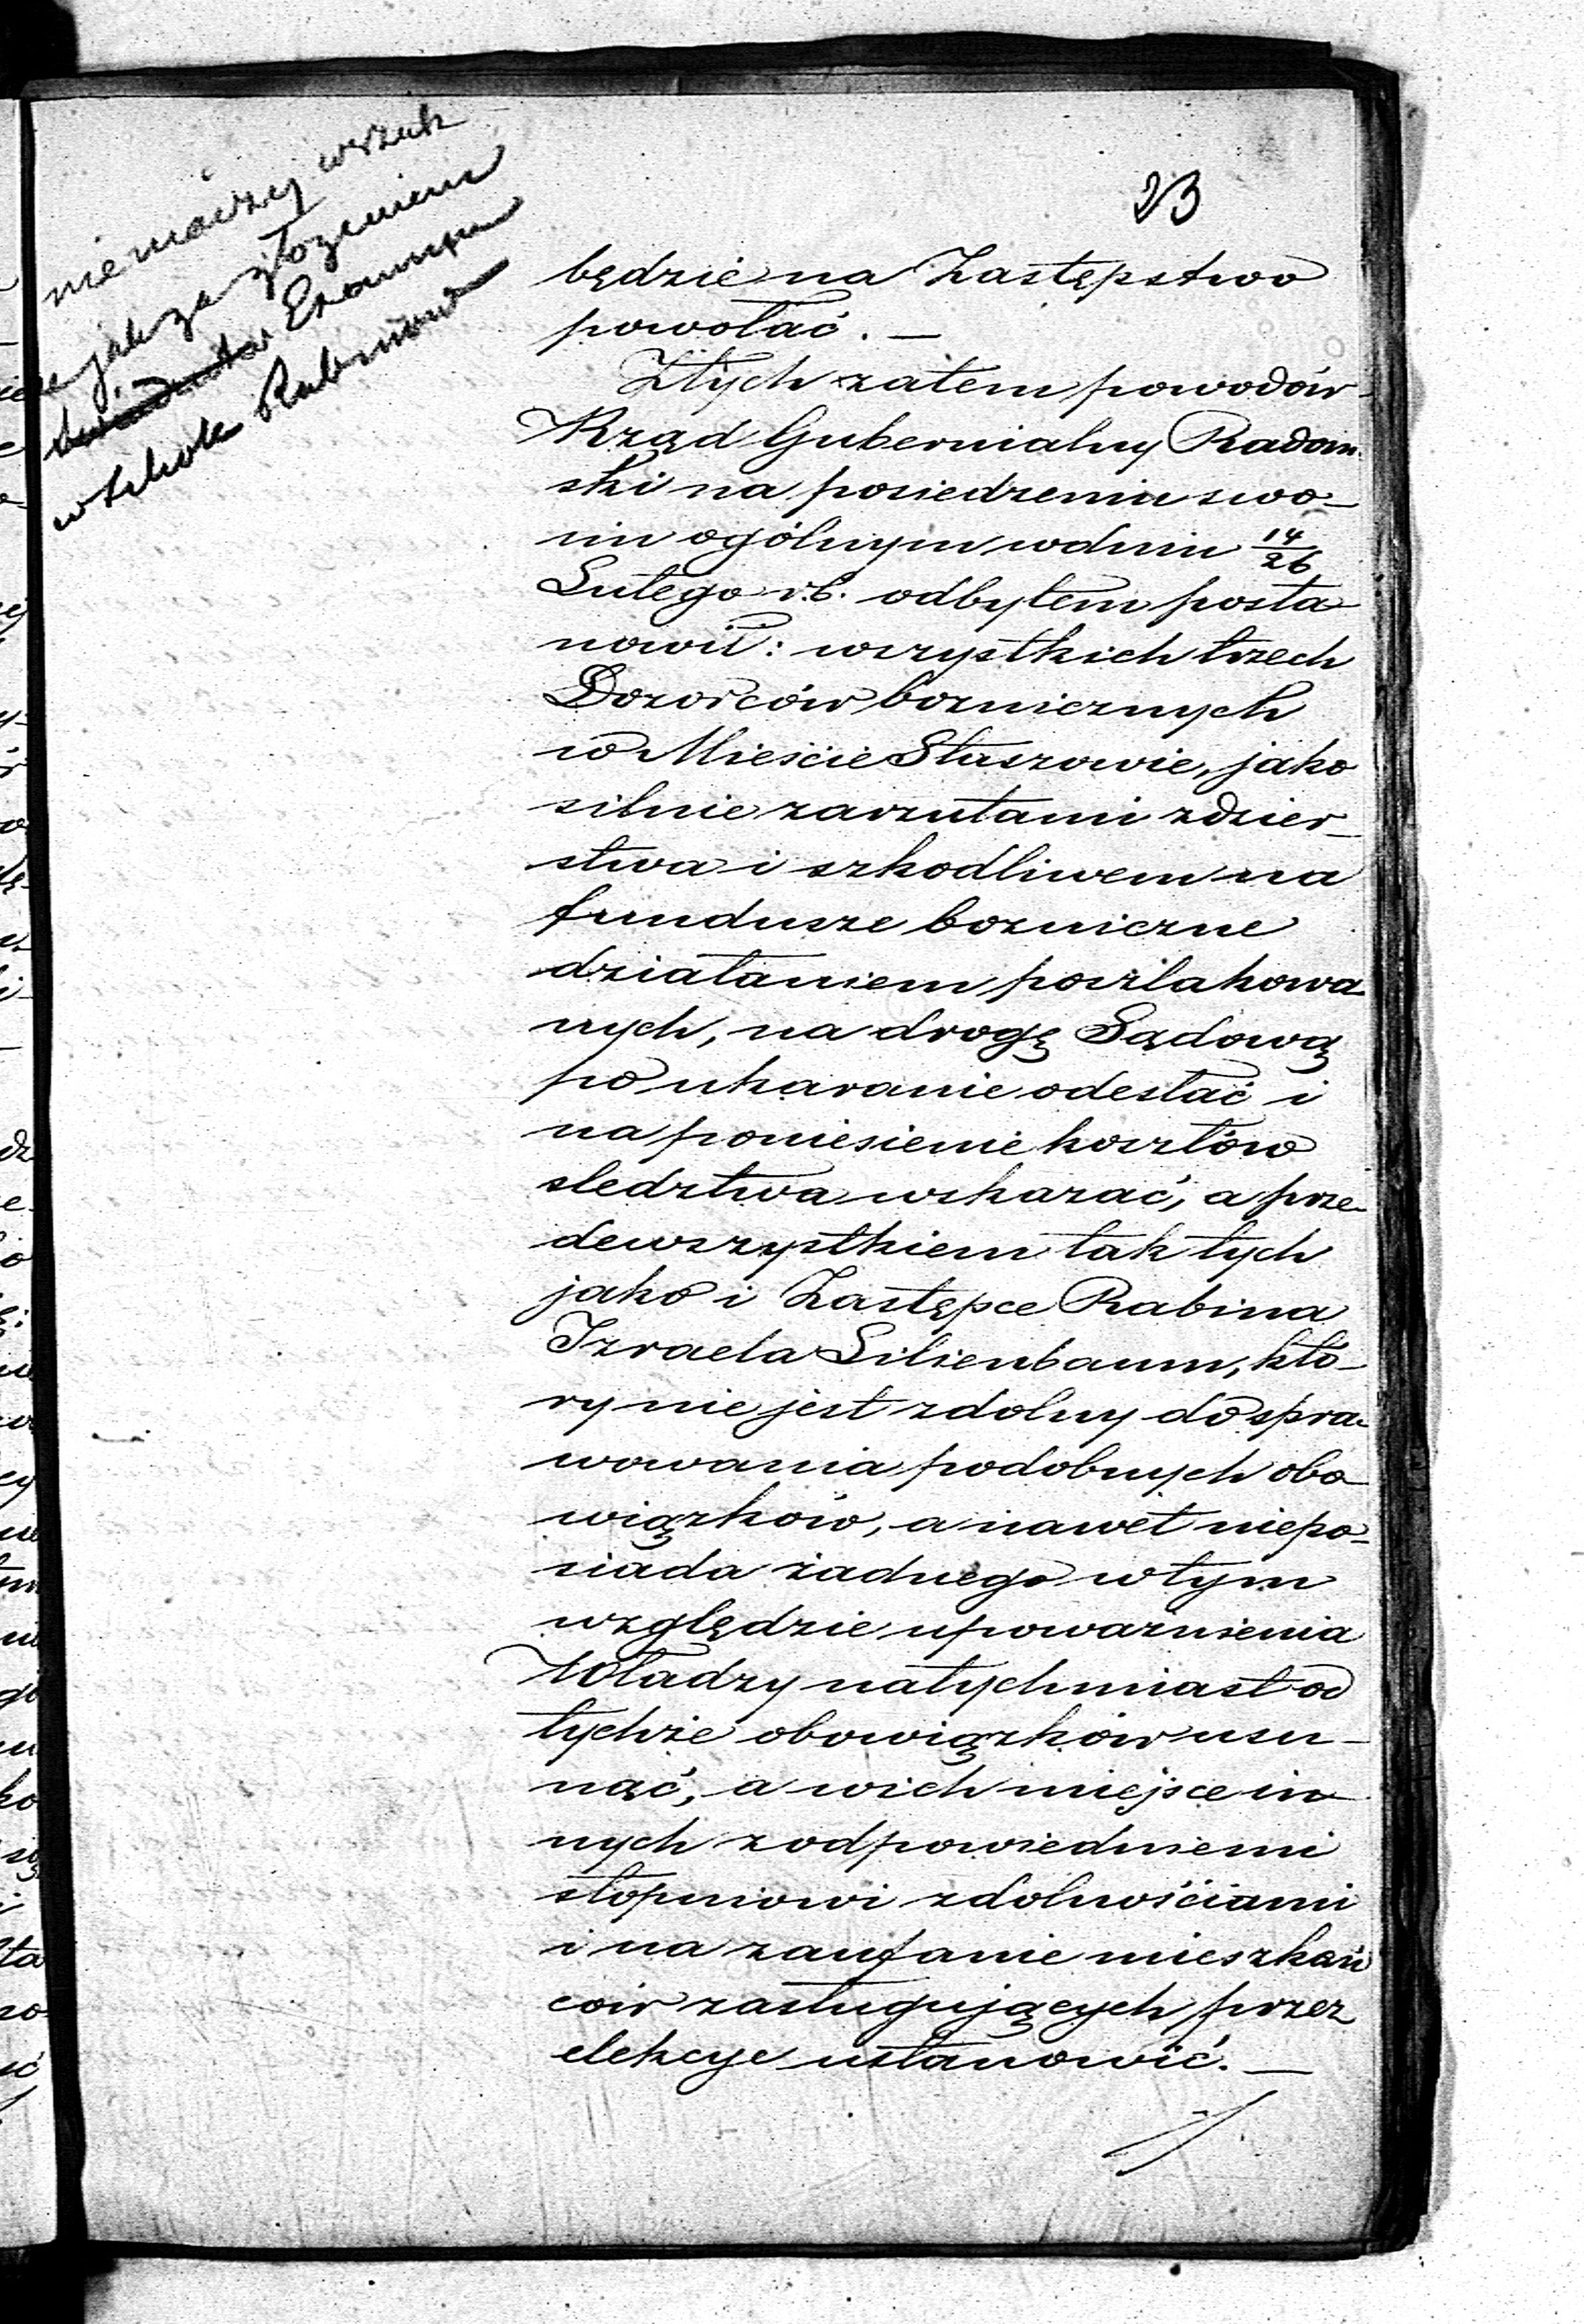 23
nie inaczej wszak
jak za złożeniem
świadectw Examinu
w szkole Rabinów
będzie na Zastępstwo
powołać. —
Ztych zatem powodów
Rząd Gubernialny Radom
ski na posiedzeniu swo-
im ogólnym w dniu 14/26
Lutego r.b. odbytem posta
nowił: wszystkich trzech
Dozorców boznicznych
w Mieście Staszowie, jako
silnie zarzutami zdzier-
stwa i szkodliwem na
fundusze bozniczne
działaniem poszlakowa
nych, na drogę Sądową
po ukaranie odesłać i
na poniesienie kosztów
sledztwa wskazać, a prze-
dewszystkiem tak tych
jako i Zastępce Rabina
Izraela Lilienbaum, któ-
ry nie jest zdolny do spra-
wowania podobnych obo-
wiązków, a nawet niepo-
siada żadnego w tym
względzie upoważnienia
Władzy natychmiast od
tychże obowiązków usu-
nąć, a wich miejsce in-
nych z odpowiedniemi
stopniowi zdolnościami
i na zaufanie mieszkań
ców zasługujących przez
elekcye ustanowić. —